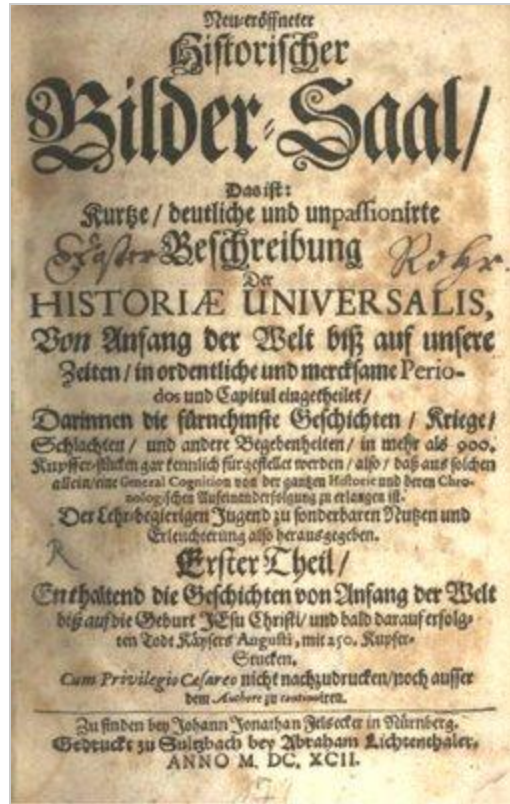 Neu-eröffneter
Historischer
Bilder-Saal/
Das ist:
Kurtze / deutliche und unpassionirte
Beschreibung
Rohr.
Der
HISTORIÆ UNIVERSALIS,
Von Anfang der Welt biß auf unsere
Zeiten / in ordentliche und mercksame Perio-
dos und Capitul eingetheilet /
Darinnen die fürnehmste Geschichten / Kriege /
Schlachten / und andere Begebenheiten / in mehr als 900.
Kupffer-stücken gar kenntlich fürgestellet werden / also / daß aus solchen
allein / eine General Cognition von der gantzen Historie und deren Chro-
nologischen Aufeinanderfolgung zu erlangen ist.
Der Lehr-begierigen Jugend zu sonderbaren Nutzen und
Erleuchterung also herausgegeben.
R
Erster Theil /
Enthaltend die Geschichten von Anfang der Welt
biß auf die Geburt JEsu Christi / und bald darauf erfolg-
ten Todt Käysers Augusti, mit 250. Kupfer-
Stucken.
Cum Privilegio Cæsareo nicht nachzudrucken / noch ausser
dem Authore zu continuiren.
Zu finden bey Johann Jonathan Felsecker in Nürnberg.
Gedruckt zu Sultzbach bey Abraham Lichtenthaler,
ANNO M. DC. XCII.